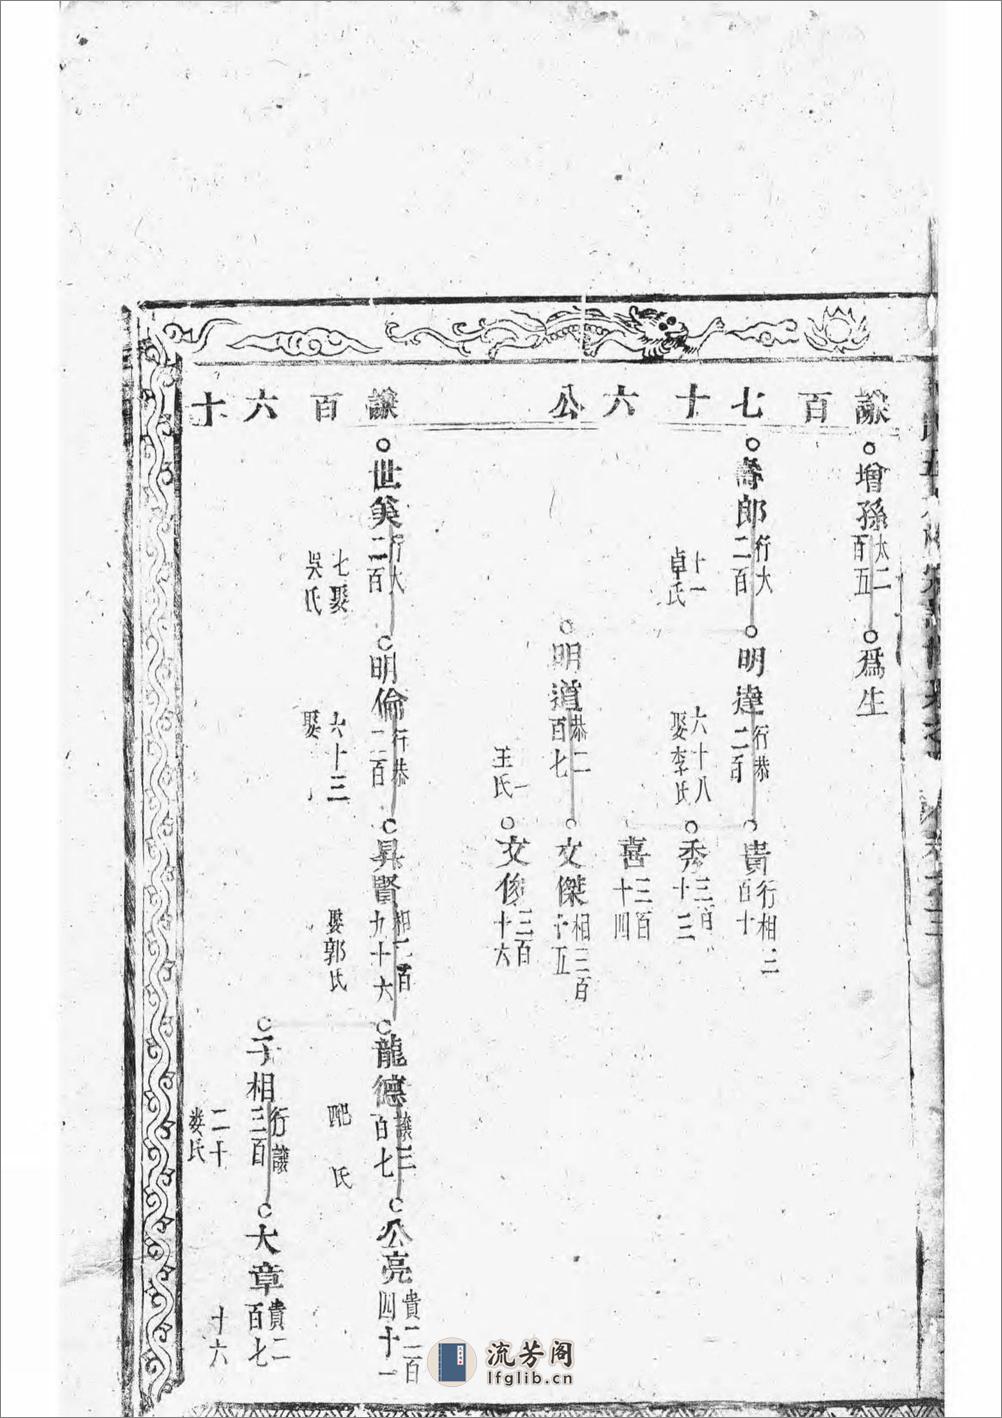 謙百七十六公
謙百六十
增孫
太二
百五
爲生
壽郎
行大
二百
十一
卓氏
明達
行恭
二百
六十八
娶李氏
貴
行相三
百十
秀
三百
十三
喜
三百
十四
明道
恭二
百七
一
王氏
文傑
相三百
十五
文俊
三百
十六
世美
行大
二百
七娶
吳氏
明倫
行恭
二百
六十三
娶
昇賢
相二百
九十六
娶郭氏
龍德
讓三
百七
配氏
公亮
貴二百
四十一
子相
行讓
三百
二十
娄氏
大章
貴二
百七
十六
流芳阁
lfglib.cn